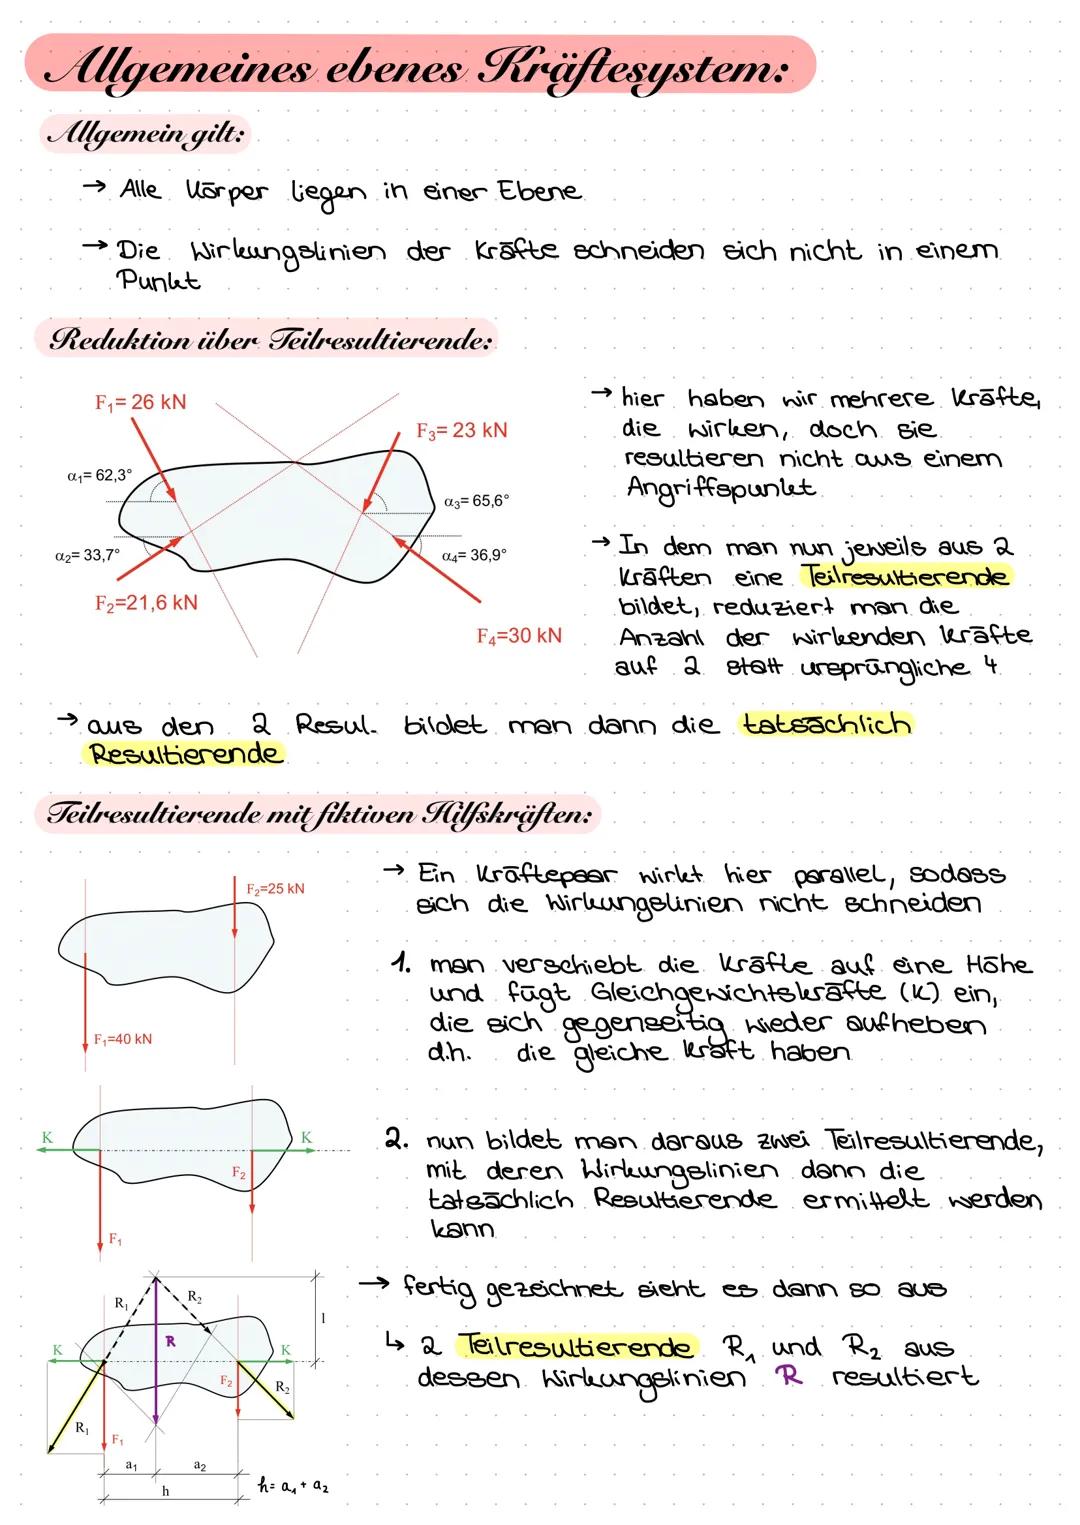 Allgemeines ebenes Kräftesystem:
Allgemein gilt:
→ Alle Körper liegen in einer Ebene
→ Die Wirkungslinien der Kräfte schneiden sich nicht in einem
Punkt
Reduktion über Teilresultierende:
F₁= 26 kN
F₃= 23 kN
α₁= 62,3°
α₃= 65,6°
α₂= 33,7°
α₄= 36,9°
F₂=21,6 kN
F₄=30 kN
→ hier haben wir mehrere Kräfte,
die wirken, doch sie
resultieren nicht aus einem
Angriffspunkt
→ In dem man nun jeweils aus 2
Kräften eine Teilresultierende
bildet, reduziert man die
Anzahl der wirkenden Kräfte
auf 2 statt ursprüngliche 4
→ aus den 2 Resul. bildet man dann die tatsächlich
Resultierende
Teilresultierende mit fiktiven Hilfskräften:
F₂=25 kN
F₁=40 kN
→ Ein Kräftepaar wirkt hier parallel, sodass
sich die Wirkungslinien nicht schneiden
1. man verschiebt die Kräfte auf eine Höhe
und fügt Gleichgewichtskräfte (K) ein,
die sich gegenseitig wieder aufheben
d.h. die gleiche Kraft haben
K
K
F₂
F₁
2. nun bildet man daraus zwei Teilresultierende,
mit deren Wirkungslinien dann die
tatsächlich Resultierende ermittelt werden
kann
R₁
R₂
l
R
K
K
F₂
R₂
R₁
F₁
a₁
a₂
h
h= a₁ + a₂
→ fertig gezeichnet sieht es dann so aus
↳ 2 Teilresultierende R₁ und R₂ aus
dessen Wirkungslinien R resultiert